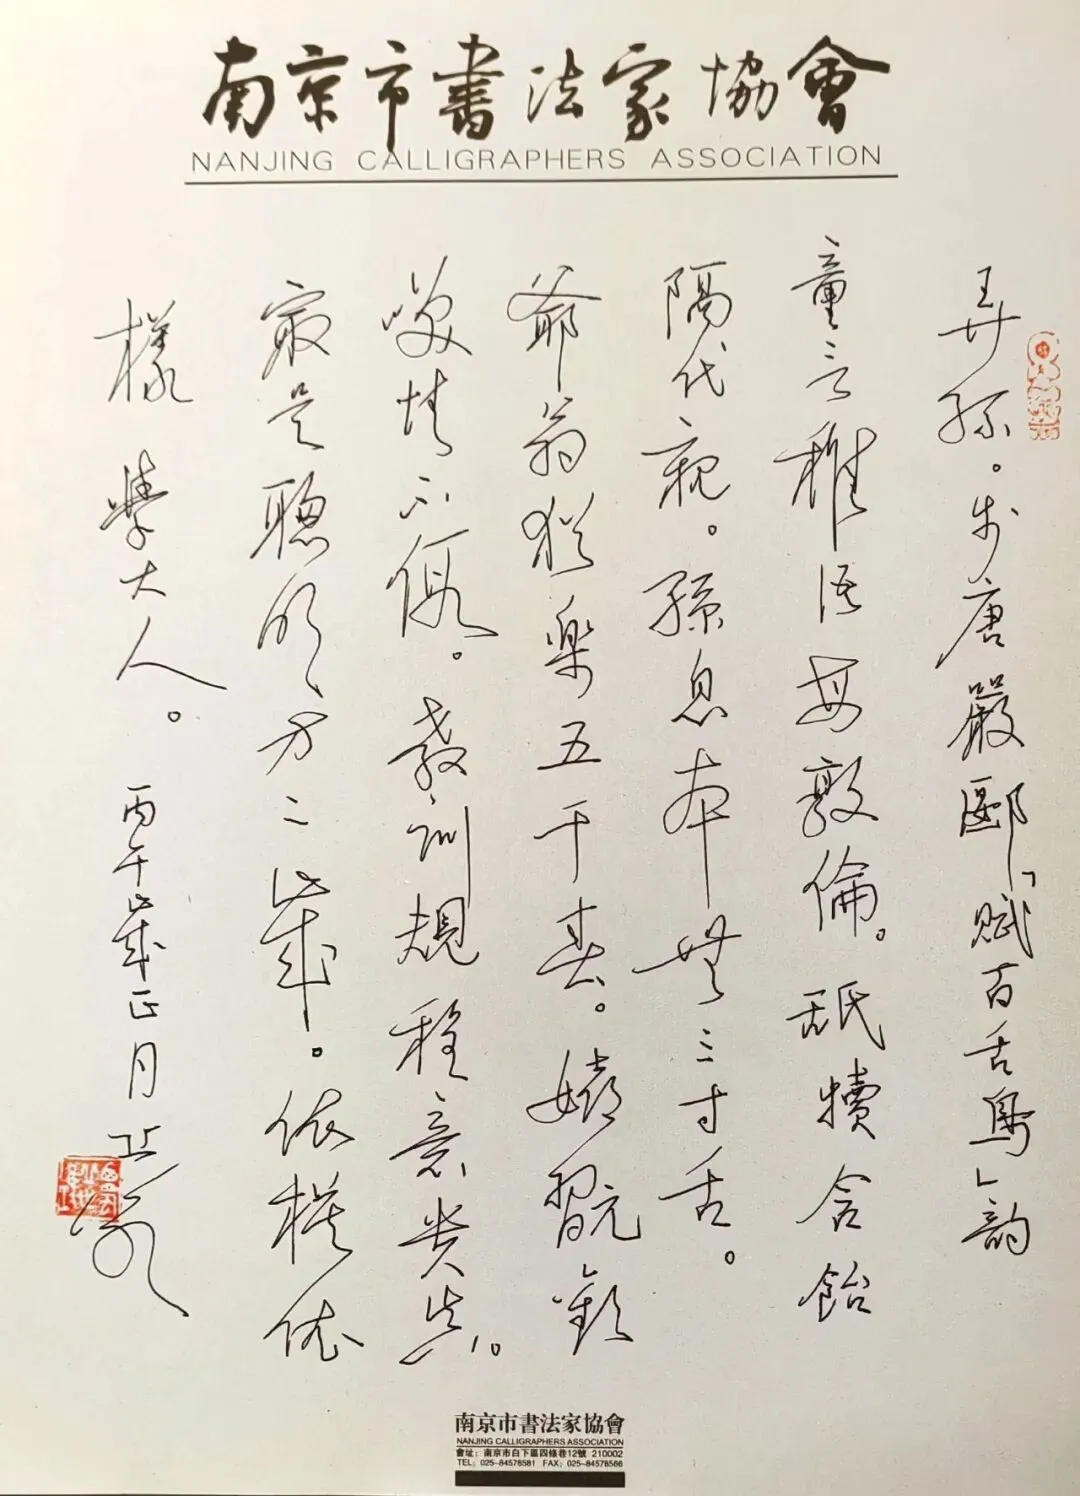 南京市書法家協會
NANJING CALLIGRAPHERS ASSOCIATION
弄孫。步唐嚴郾「賦百舌鳥」韵
童言稚語每敦倫。舐犢含飴
隔代親。孫息本無三寸舌。
爺翁猶樂五千春。嬉翫歡
咲情不假。教訓規程意貴真。
最是聰明方二歲。依模依
樣學大人。
丙午歲正月
南京市書法家協會
NANJING CALLIGRAPHERS ASSOCIATION
會址：南京市白下區四條巷12號 210002
TEL：025-84578581 FAX：025-84578566